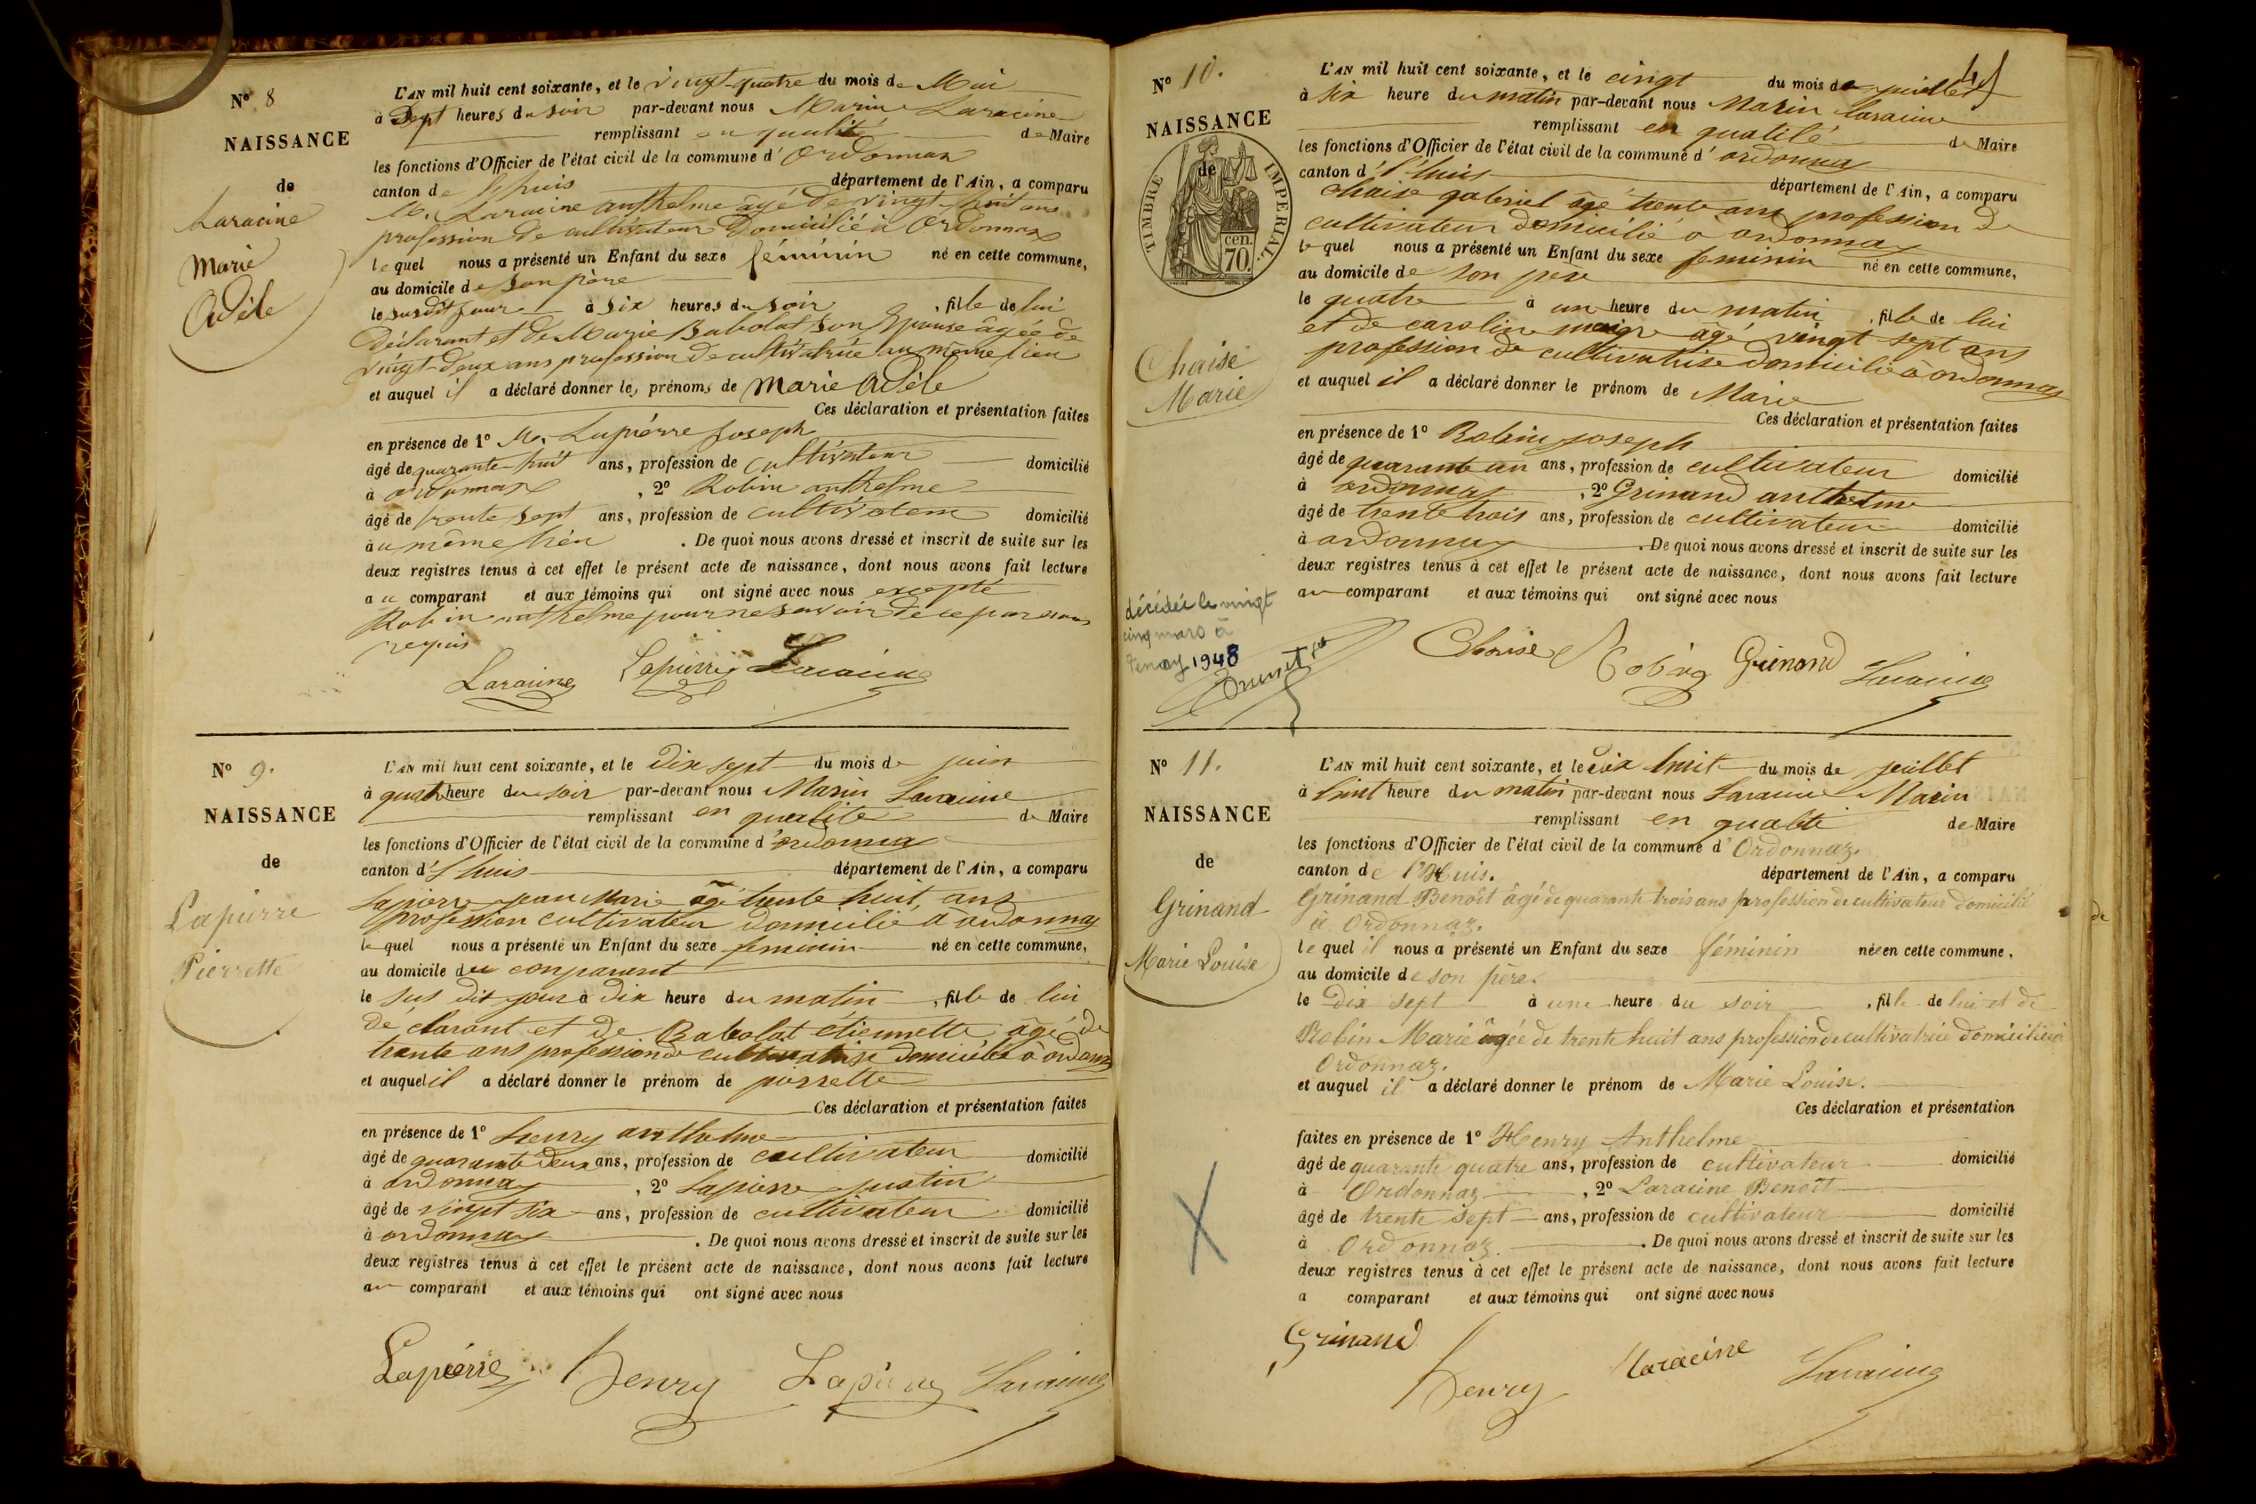 N° 8
NAISSANCE
de
Laracine
Marie
Adèle
L'AN mil huit cent soixante, et le vingt-quatre du mois de Mai
à Sept heures du soir par-devant nous Marin Laracine
remplissant en qualité de Maire
les fonctions d'Officier de l'état civil de la commune d'Ordonnaz
canton de Lhuis département de l'Ain, a comparu
M. Laracine anthelme âgé de vingt-huit ans
profession de cultivateur Domicilié à Ordonnaz
lequel nous a présenté un Enfant du sexe féminin né en cette commune,
au domicile de son père
le susdit jour à six heures du soir, fille de lui
Déclarant et de Marie Babolat son Epouse âgée de
vingt-deux ans profession de cultivatrice au même lieu
et auquel il a déclaré donner les prénoms de Marie Adèle
Ces déclaration et présentation faites
en présence de 1° M. Lapierre Joseph
âgé de quarante-huit ans, profession de cultivateur domicilié
à ordonnaz, 2° Robin anthelme
âgé de trente sept ans, profession de cultivateur domicilié
au même lieu. De quoi nous avons dressé et inscrit de suite sur les
deux registres tenus à cet effet le présent acte de naissance, dont nous avons fait lecture
au comparant et aux témoins qui ont signé avec nous excepté
Robin anthelme pour ne savoir de ce par nous
requis
Laracine Lapierre Laracine
N° 9.
NAISSANCE
de
Lapierre
Pierrette
L'AN mil huit cent soixante, et le Dix sept du mois de juin
à quatre heure du soir par-devant nous Marin Laracine
remplissant en qualité de Maire
les fonctions d'Officier de l'état civil de la commune d'ordonnaz
canton d'Lhuis département de l'Ain, a comparu
Lapierre jean Marie âgé trente huit ans
profession cultivateur domicilié à ordonnaz
lequel nous a présenté un Enfant du sexe feminin né en cette commune,
au domicile du comparant
le sus dit jour à dix heure du matin, fille de lui
déclarant et de Babolat étiennette âgé de
trente ans profession de cultivatrise domicilié à ordonnaz
et auquel il a déclaré donner le prénom de pierrette
Ces déclaration et présentation faites
en présence de 1° henry anthelme
âgé de quarante deux ans, profession de cultivateur domicilié
à ordonnaz, 2° Lapierre justin
âgé de vingt six ans, profession de cultivateur domicilié
à ordonnaz. De quoi nous avons dressé et inscrit de suite sur les
deux registres tenus à cet effet le présent acte de naissance, dont nous avons fait lecture
au comparant et aux témoins qui ont signé avec nous
Lapierre henry Lapierre Laracine
N° 10.
NAISSANCE
de
TIMBRE IMPERIAL.
cen.
70.
Chaise
Marie
décédée le vingt
cinq mars à
Tenay 1948
L'AN mil huit cent soixante, et le cinq du mois de juillet
à six heure du matin par-devant nous Marin Laracine
remplissant en qualité de Maire
les fonctions d'Officier de l'état civil de la commune d'ordonnaz
canton d'Lhuis département de l'Ain, a comparu
chaise gabriel âgé trente ans profession de
cultivateur domicilié a ordonnaz
lequel nous a présenté un Enfant du sexe feminin né en cette commune,
au domicile de son pere
le quatre à un heure du matin, fille de lui
et de caroline maigre âgé vingt sept ans
profession de cultivatrise domicilié à ordonnaz
et auquel il a déclaré donner le prénom de Marie
Ces déclaration et présentation faites
en présence de 1° Robin joseph
âgé de quarante un ans, profession de cultivateur domicilié
à ordonnaz, 2° Grinand anthelme
âgé de trente trois ans, profession de cultivateur domicilié
à ordonnaz. De quoi nous avons dressé et inscrit de suite sur les
deux registres tenus à cet effet le présent acte de naissance, dont nous avons fait lecture
au comparant et aux témoins qui ont signé avec nous
Chaise Robin Grinand Laracine
N° 11.
NAISSANCE
de
Grinand
Marie Louise
L'AN mil huit cent soixante, et le dix huit du mois de juillet
à huit heure du matin par-devant nous Laracine Marin
remplissant en qualité de Maire
les fonctions d'Officier de l'état civil de la commune d'Ordonnaz.
canton de l'Huis. département de l'Ain, a comparu
Grinand Benoît âgé de quarante trois ans profession de cultivateur domicilié
à Ordonnaz.
lequel il nous a présenté un Enfant du sexe féminin née en cette commune,
au domicile de son père.
le dix sept à une heure du soir, fille de lui et de
Robin Marie âgée de trente huit ans profession de cultivatrice domiciliée à
Ordonnaz.
et auquel il a déclaré donner le prénom de Marie Louise.
Ces déclaration et présentation
faites en présence de 1° Henry Anthelme
âgé de quarante quatre ans, profession de cultivateur domicilié
à Ordonnaz, 2° Laracine Benoît
âgé de trente sept ans, profession de cultivateur domicilié
à Ordonnaz. De quoi nous avons dressé et inscrit de suite sur les
deux registres tenus à cet effet le présent acte de naissance, dont nous avons fait lecture
a comparant et aux témoins qui ont signé avec nous
Grinand henry Laracine Laracine